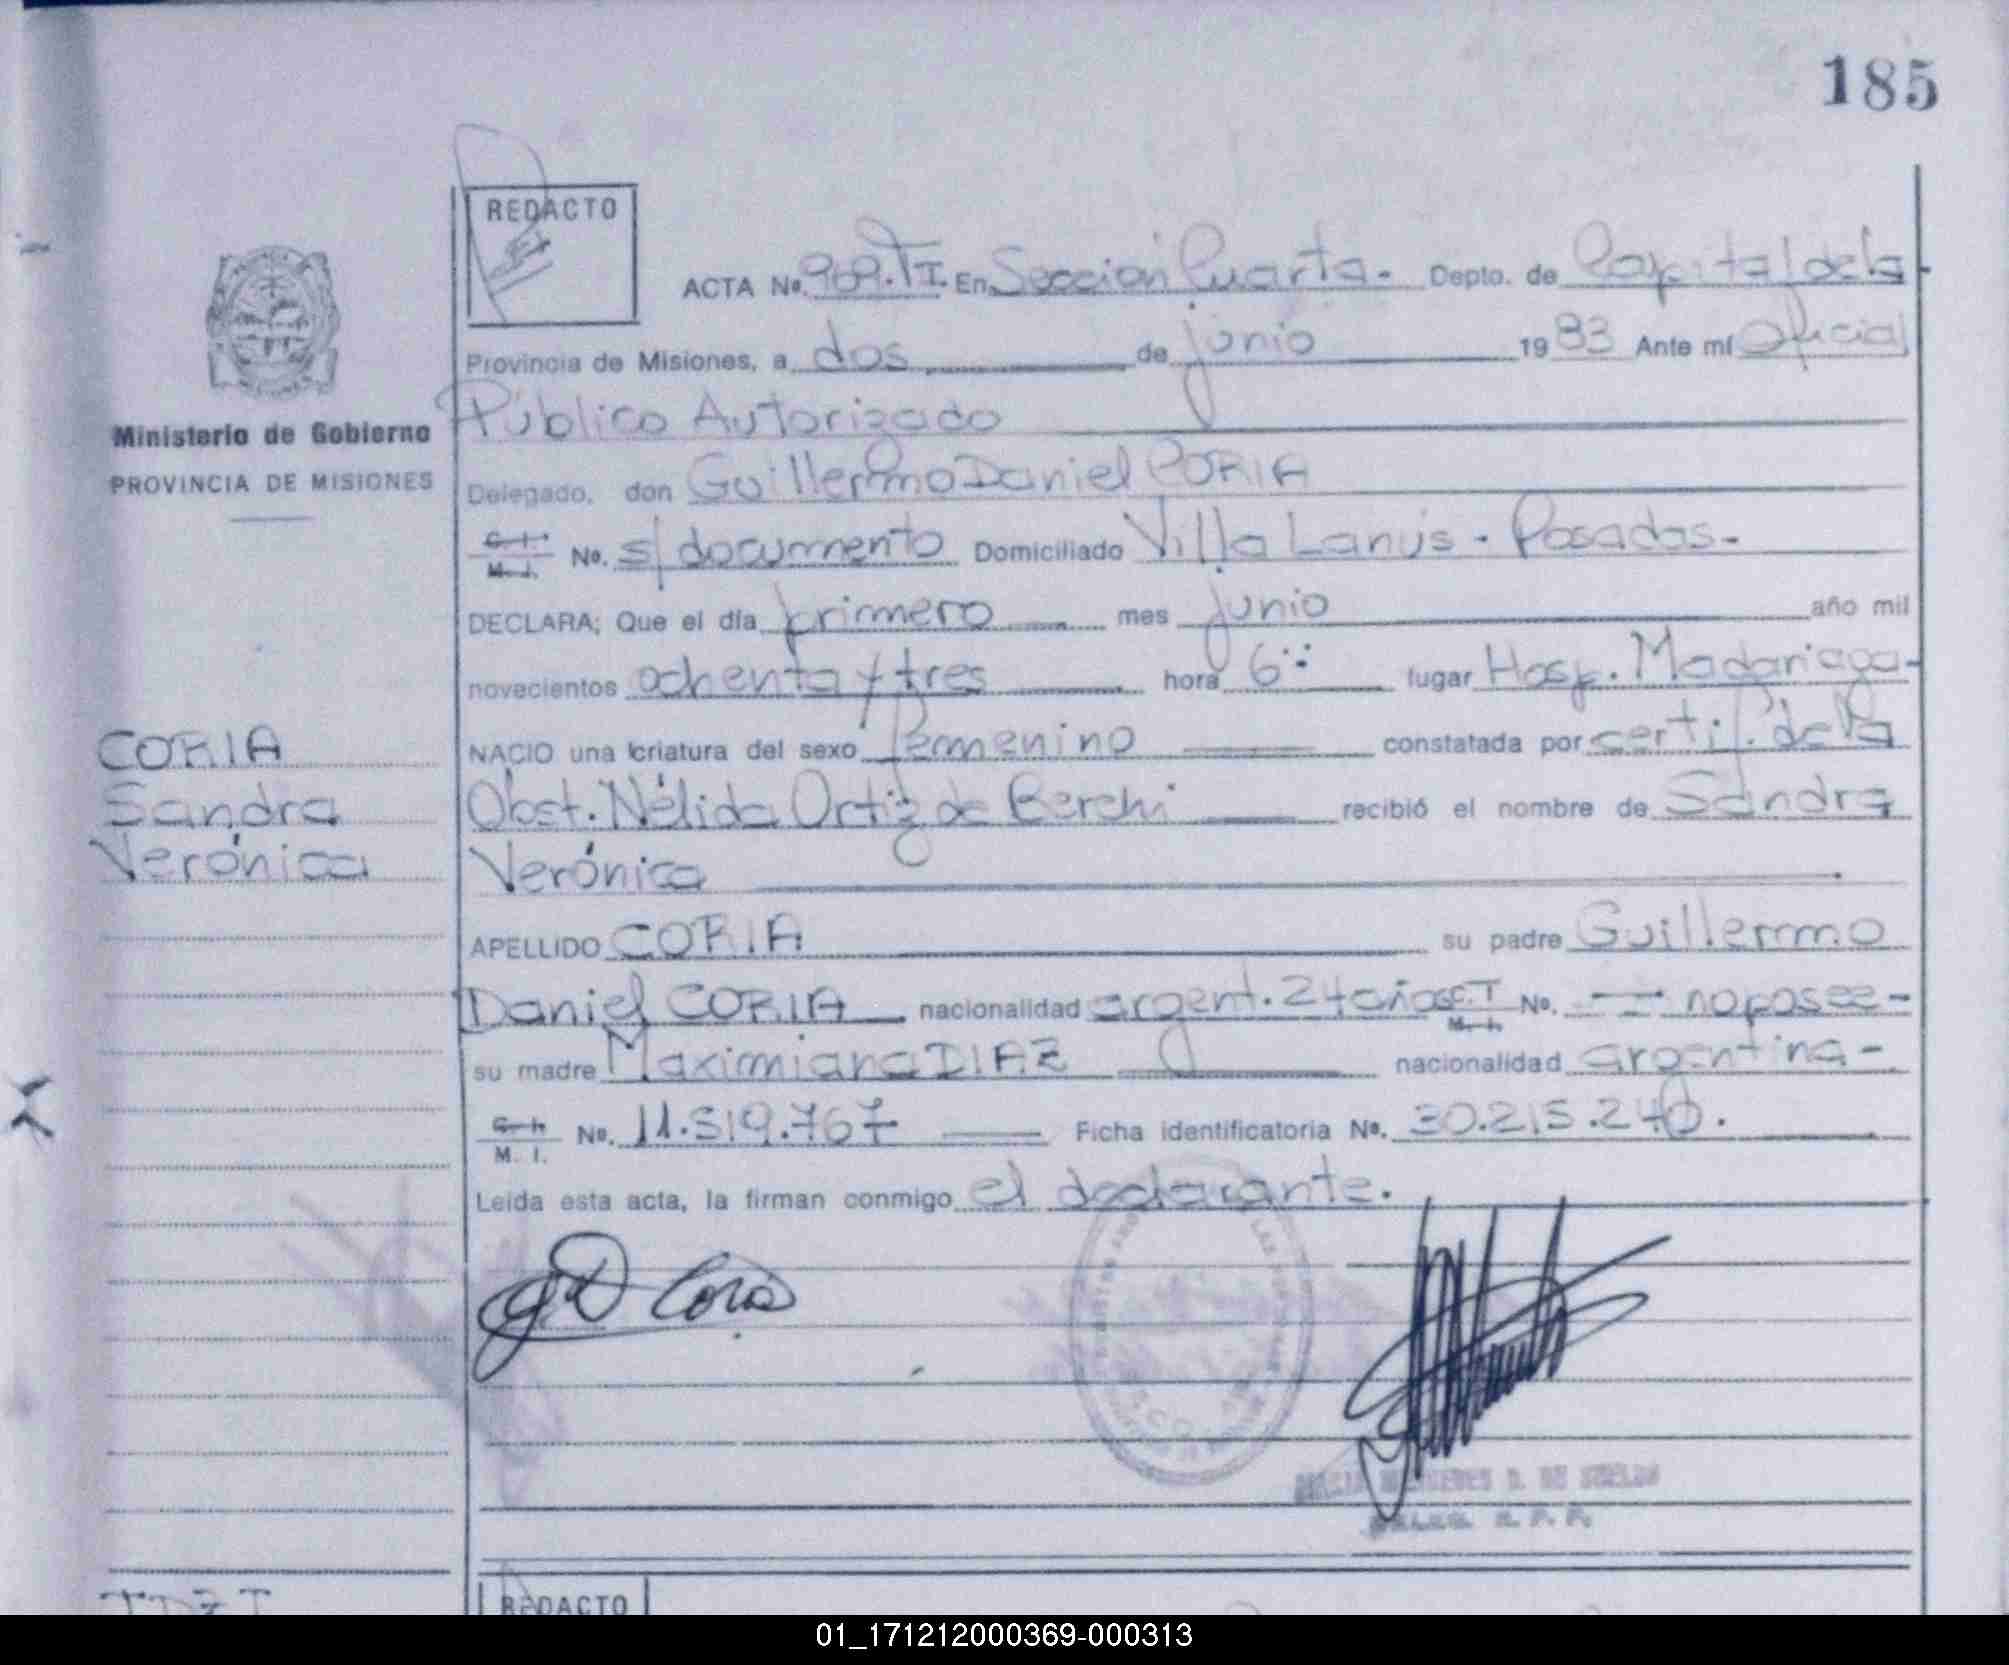 185
REDACTO
ACTA No. 909. TI. En Sección Cuarta. Depto. de Capital de la
Provincia de Misiones, a dos de junio 1983 Ante mí Oficial
Público Autorizado
Ministerio de Gobierno
PROVINCIA DE MISIONES
Delegado, don Guillermo Daniel CORIA
C. I. M. I. No. s/documento Domiciliado Villa Lanús - Posadas-
DECLARA; Que el día primero mes junio año mil
novecientos ochenta y tres hora 6 lugar Hosp. Madariaga-
NACIO una criatura del sexo femenino constatada por certif. de la
Obst. Nélida Ortiz de Berchi recibió el nombre de Sandra
Verónica
CORIA
Sandra
Verónica
APELLIDO CORIA su padre Guillermo
Daniel CORIA nacionalidad argent. 24 años C.I. M. I. No. no posee-
su madre Maximiana DIAZ nacionalidad argentina-
C. I. M. I. No. 11.519.767 Ficha identificatoria No. 30.215.240.
Leída esta acta, la firman conmigo el declarante.
GD Coria
REDACTO
01_171212000369-000313